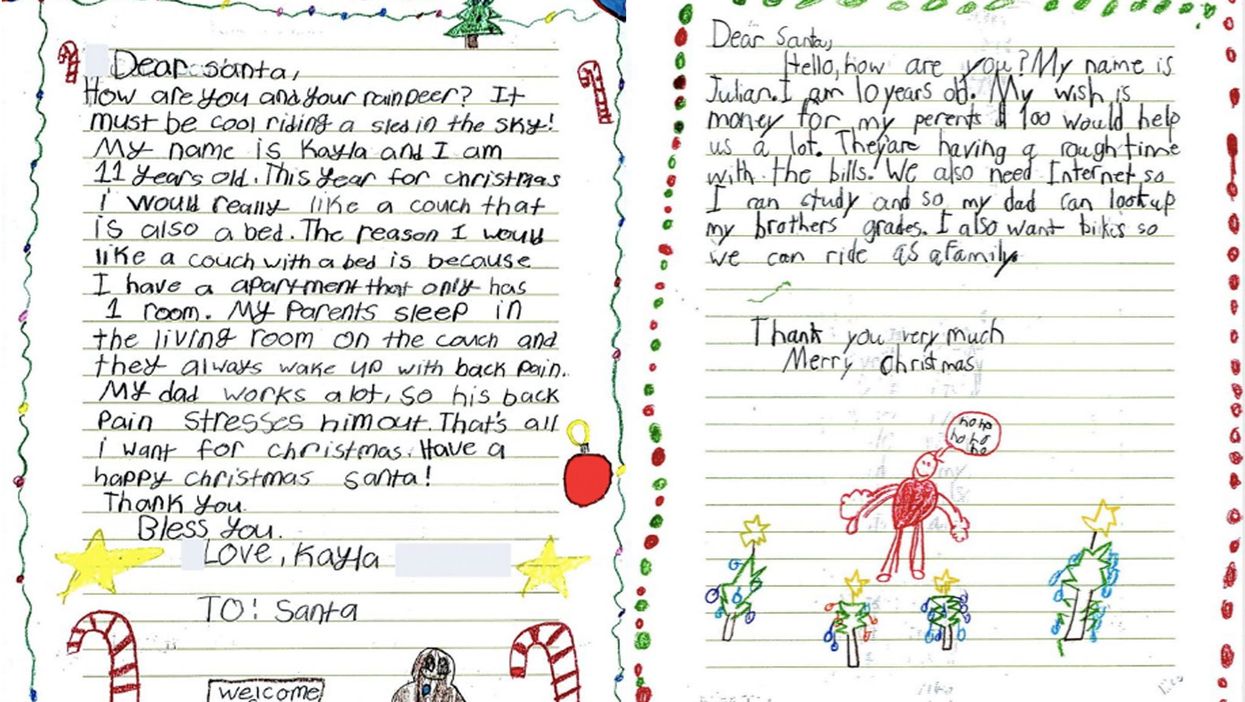 Dear Santa,
How are you and your rainpeer? It
must be cool riding a sled in the sky!
My name is Kayla and I am
11 years old. This year for christmas
i would really like a couch that
is also a bed. The reason I would
like a couch with a bed is because
I have a apartment that only has
1 room. My Parents sleep in
the living room on the couch and
they always wake up with back pain.
My dad works alot, so his back
Pain stresses him out. That's all
i want for christmas. Have a
happy christmas santa!
Thank you.
Bless you.
Love, Kayla
TO: Santa
welcome
Dear Santa,
Hello, how are you? My name is
Julian. I am 10 years old. My wish is
money for my perents $ 100 would help
us a lot. They are having a rough time
with the bills. We also need Internet so
I can study and so my dad can look up
my brothers grades. I also want bikis so
we can ride as a family
Thank you very much
Merry Christmas
ho ho
ho ho
ho